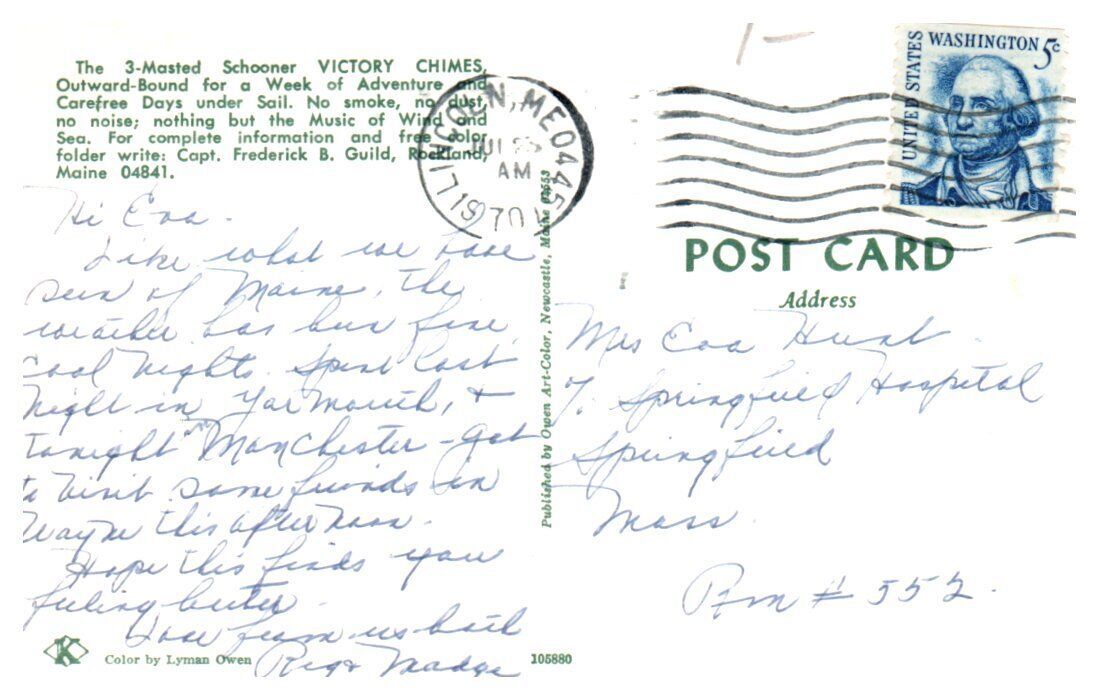 The 3-Masted Schooner VICTORY CHIMES,
Outward-Bound for a Week of Adventure and
Carefree Days under Sail. No smoke, no dust,
no noise; nothing but the Music of Wind and
Sea. For complete information and free color
folder write: Capt. Frederick B. Guild, Rockland,
Maine 04841.
Hi Eva.
Like what we have
seen of Maine, the
weather has been fine
Cool Nights. Spent last
Night in Yarmouth, +
tonight in Manchester - got
to visit some friends in
Wayne this afternoon.
Hope this finds you
feeling better.
Love from us both
Reg + Madge
K
Color by Lyman Owen
105880
Published by Owen Art-Color, Newcastle, Maine 04553
LINCOLN, ME 0445
JUL
AM
1970
1-
UNITED STATES
WASHINGTON 5c
POST CARD
Address
Mrs Eva Hunt
% Springfield Hospital
Springfield
Mass.
Rm # 552.